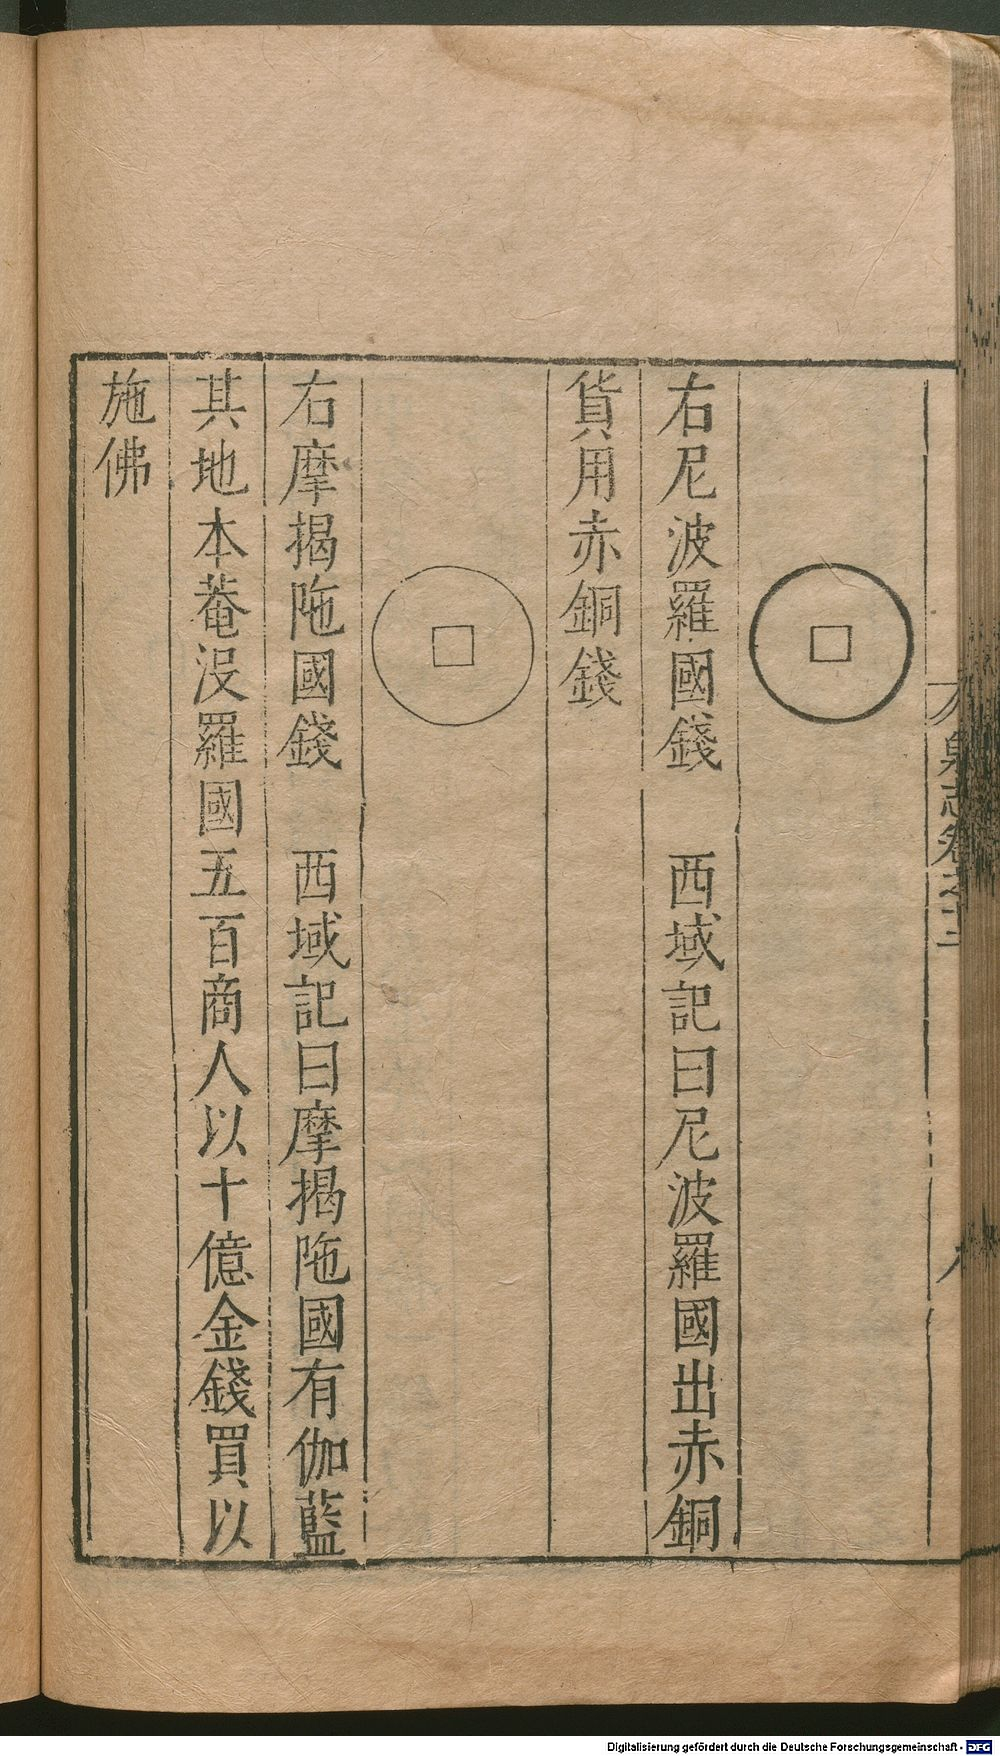 泉志卷之十二
右尼波羅國錢　西域記曰尼波羅國出赤銅
貨用赤銅錢
右摩揭陁國錢　西域記曰摩揭陁國有伽藍
其地本菴没羅國五百商人以十億金錢買以
施佛
Digitalisierung gefördert durch die Deutsche Forschungsgemeinschaft - DFG